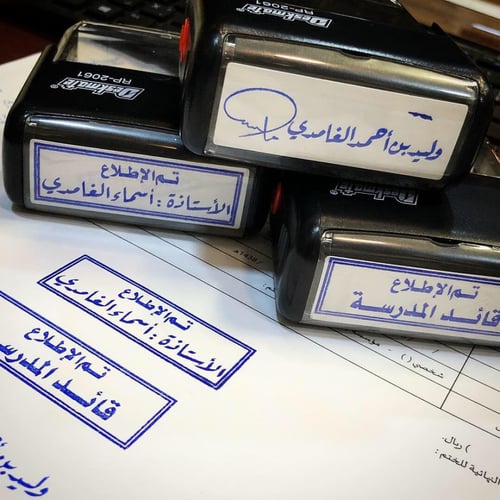 Deskmate
RP-2061
Deskmate
Deskmate
وليد بن أحمد الغامدي
تم الإطلاع
الأستاذة : أسماء الغامدي
تم الإطلاع
قائد المدرسة
تم الإطلاع
الأستاذة : أسماء الغامدي
تم الإطلاع
قائد المدرس
وليد بن
شخصي ( )
) ريال.
النهائية للختم :